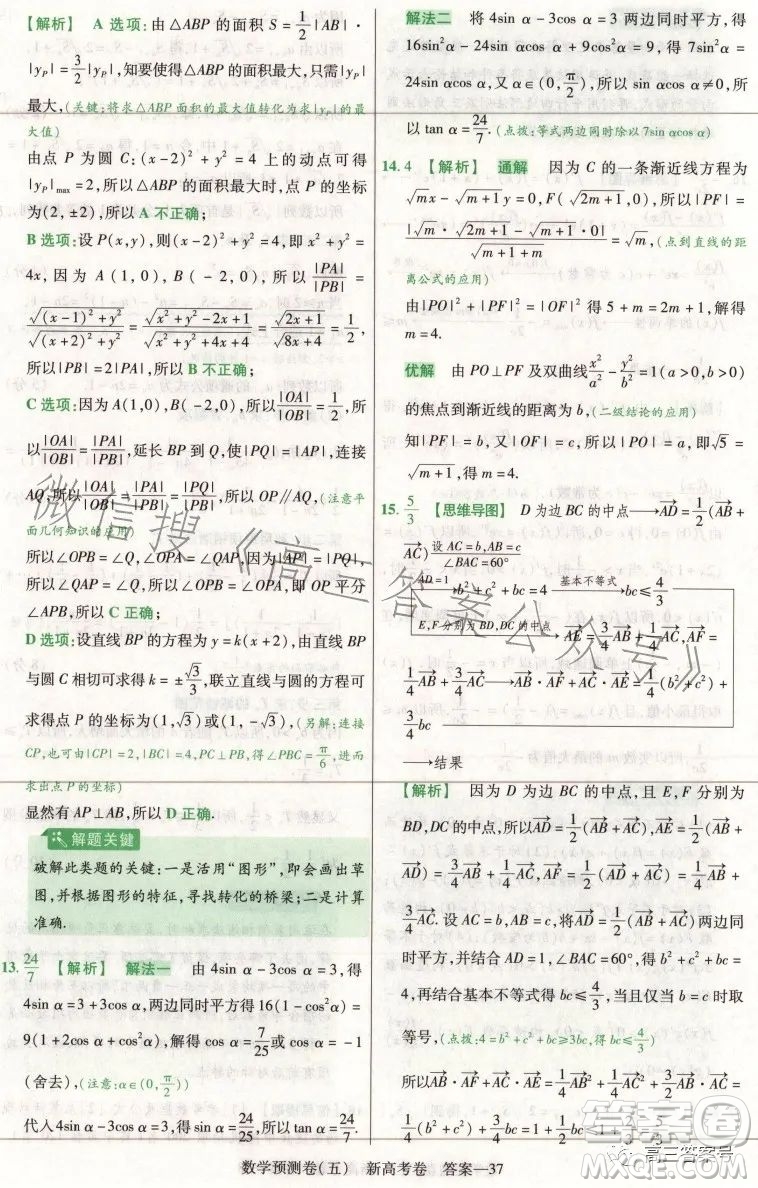 【解析】 A 选项:由△ABP 的面积 S = 1/2 |AB| ·
|y_P| = 3/2 |y_P|,知要使得△ABP 的面积最大,只需|y_P|
最大,(关键:将求△ABP 面积的最大值转化为求|y_P|的最
大值)
由点 P 为圆 C:(x-2)²+y²=4 上的动点可得
|y_P|max=2,所以△ABP 的面积最大时,点 P 的坐标
为(2,±2),所以 A 不正确;
B 选项:设 P(x,y),则(x-2)²+y²=4,即 x²+y²=
4x,因为 A(1,0),B(-2,0),所以 |PA|/|PB| =
√((x-1)²+y²)/√((x+2)²+y²) = √(x²+y²-2x+1)/√(x²+y²+4x+4) = √(2x+1)/√(8x+4) = 1/2,
所以|PB|=2|PA|,所以 B 不正确;
C 选项:因为 A(1,0),B(-2,0),所以 |OA|/|OB| = 1/2,所
以 |OA|/|OB| = |PA|/|PB|,延长 BP 到 Q,使|PQ|=|AP|,连接
AQ,所以 |OA|/|OB| = |PA|/|PB| = |PQ|/|PB|,所以 OP∥AQ,(注意平
面几何知识的应用)
所以∠OPB=∠Q,∠OPA=∠QAP,因为|AP|=|PQ|,
所以∠QAP=∠Q,所以∠OPB=∠OPA,即 OP 平分
∠APB,所以 C 正确;
D 选项:设直线 BP 的方程为 y=k(x+2),由直线 BP
与圆 C 相切可求得 k=±√3/3,联立直线与圆的方程可
求得点 P 的坐标为(1,√3)或(1,-√3),(另解:连接
CP,也可由|CP|=2,|BC|=4,PC⊥PB,得∠PBC=π/6,进而
求出点 P 的坐标)
显然有 AP⊥AB,所以 D 正确.
解题关键
破解此类题的关键:一是活用“图形”,即会画出草
图,并根据图形的特征,寻找转化的桥梁;二是计算
准确.
13. 24/7 【解析】 解法一 由 4sin α-3cos α=3,得
4sin α=3+3cos α,两边同时平方得16(1-cos²α)=
9(1+2cos α+cos²α),解得 cos α=7/25或 cos α=-1
(舍去),(注意:α∈(0,π/2))
代入4sin α-3cos α=3,得 sin α=24/25,所以 tan α=24/7.
解法二 将 4sin α-3cos α=3 两边同时平方,得
16sin²α-24sin αcos α+9cos²α=9,得 7sin²α=
24sin αcos α,又 α∈(0,π/2),所以 sin αcos α≠0,所
以 tan α=24/7.(点拨:等式两边同时除以 7sin αcos α)
14. 4 【解析】 通解 因为 C 的一条渐近线方程为
√m x-√(m+1) y=0,F(√(2m+1),0),所以|PF|=
|√m·√(2m+1)-√(m+1)·0|/√(m+1+m)=√m,(点到直线的距
离公式的应用)
由|PO|²+|PF|²=|OF|²得 5+m=2m+1,解得
m=4.
优解 由 PO⊥PF 及双曲线x²/a²-y²/b²=1(a>0,b>0)
的焦点到渐近线的距离为 b,(二级结论的应用)
知|PF|=b,又|OF|=c,所以|PO|=a,即√5=
√(m+1),解得 m=4.
15. 5/3 【思维导图】 D 为边 BC 的中点→AD=1/2(AB+
AC) 设 AC=b,AB=c ∠BAC=60°
AD=1→b²+c²+bc=4 基本不等式→bc≤4/3
E,F分别为BD,DC的中点→AE=3/4AB+1/4AC,AF=
1/4AB+3/4AC→AB·AF+AC·AE=1/4(b²+c²)+
3/4bc
→结果
【解析】 因为 D 为边 BC 的中点,且 E,F 分别为
BD,DC 的中点,所以AD=1/2(AB+AC),AE=1/2(AB+
AD)=3/4AB+1/4AC,AF=1/2(AC+AD)=1/4AB+
3/4AC. 设 AC=b,AB=c,将AD=1/2(AB+AC)两边同
时平方,并结合|AD|=1,∠BAC=60°,得 b²+c²+bc=
4,再结合基本不等式得 bc≤4/3,当且仅当 b=c 时取
等号,(点拨:4=b²+c²+bc≥3bc,得 bc≤4/3)
所以AB·AF+AC·AE=1/4AB²+1/4AC²+3/4AB·
数学预测卷(五) 新高考卷 答案—37
微信搜《高三答案公众号》
答案圈
高三答案号